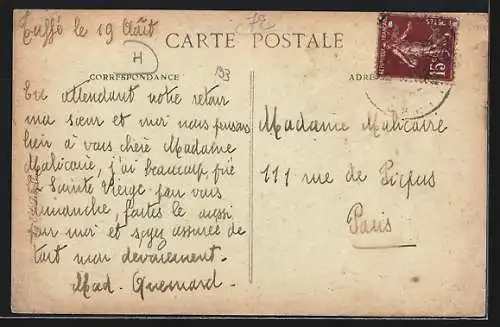 Tuffé le 19 Août
72
H
CARTE POSTALE
CORRESPONDANCE
193
15
En attendant notre retour
ma sœur et moi nous pensons
bien à vous chère Madame
Malicaire, j'ai beaucoup prié
la Sainte Vierge pour vous
dimanche, faites le aussi
pour moi et soyez assurée de
tout mon dévouement.
Mad. Quesnard.
Madame Malicaire
111 rue de Picpus
Paris